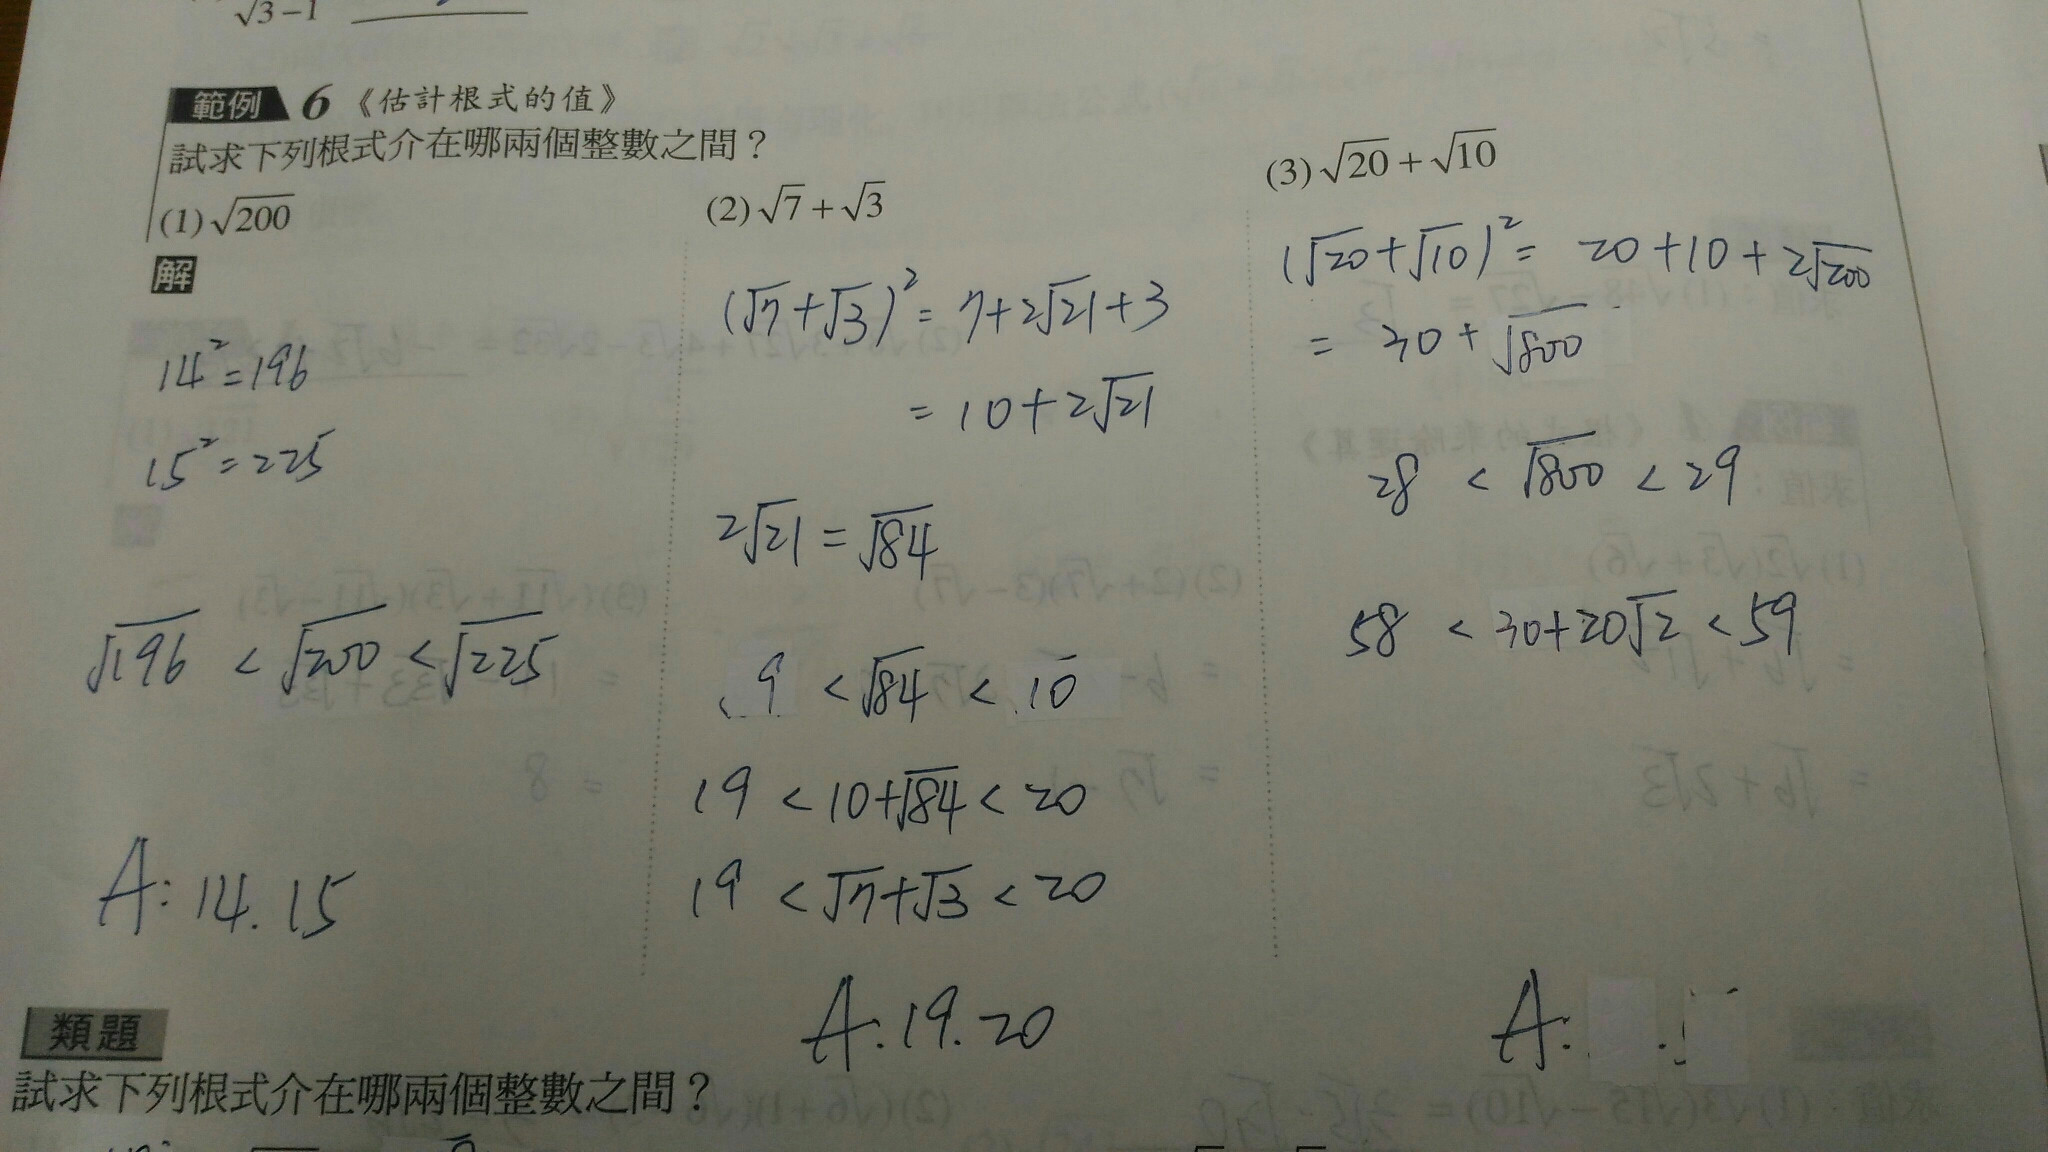 √3-1
範例 6 《估計根式的值》
試求下列根式介在哪兩個整數之間？
(1) √200
解
14² = 196
15² = 225
√196 < √200 < √225
A: 14. 15
(2) √7 + √3
(√7 + √3)² = 7 + 2√21 + 3
= 10 + 2√21
2√21 = √84
9 < √84 < 10
19 < 10 + √84 < 20
19 < √7 + √3 < 20
A: 19. 20
(3) √20 + √10
(√20 + √10)² = 20 + 10 + 2√200
= 30 + √800
28 < √800 < 29
58 < 30 + 20√2 < 59
A:
類題
試求下列根式介在哪兩個整數之間？